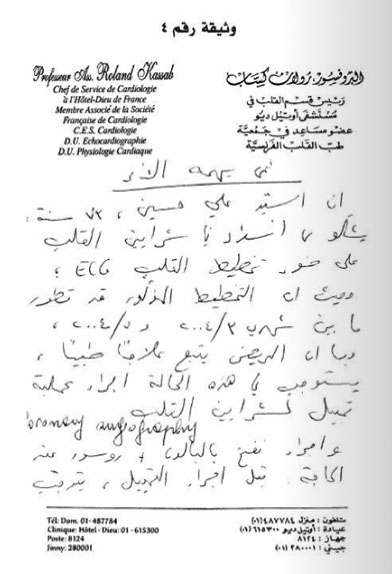 وثيقة رقم ٤
Professeur Ass. Roland Kassab
Chef de Service de Cardiologie
à l'Hôtel-Dieu de France
Membre Associé de la Société
Française de Cardiologie
C.E.S. Cardiologie
D.U. Echocardiographie
D.U. Physiologie Cardiaque
البروفسور. رولان كسّاب
رئيس قسم القلب في
مستشفى أوتيل ديو
عضو مساعد في جمعية
طب القلب الفرنسية
لمن يهمه الأمر
إن السيد علي حسين ، ٧٣ سنة :
يشكو من انسداد في شرايين القلب
على ضوء تخطيط القلب ECG ؛
وحيث ان التخطيط المذكور قد تطور
ما بين شهري ٢٠٠٤/٣ و ٢٠٠٤/٥ ،
وبما ان المريض يتبع علاجًا طبيًا ،
يستوجب في هذه الحالة اجراء عملية
تمييل لشرايين القلب
coronary angiography
واجراء نفخ بالبالون + روسور عند
الحاجة. قبل اجراء التمييل ، يترتب
Tél: Dom. 01-487784
Clinique: Hôtel - Dieu: 01 - 615300
Poste: 8124
Jinny: 280001
تلفون : منزل ٤٨٧٧٨٤ (٠١)
عيادة : أوتيل ديو ٦١٥٣٠٠ (٠١)
جهاز : ٨١٢٤
جيني : ٢٨٠٠٠١ (٠١)